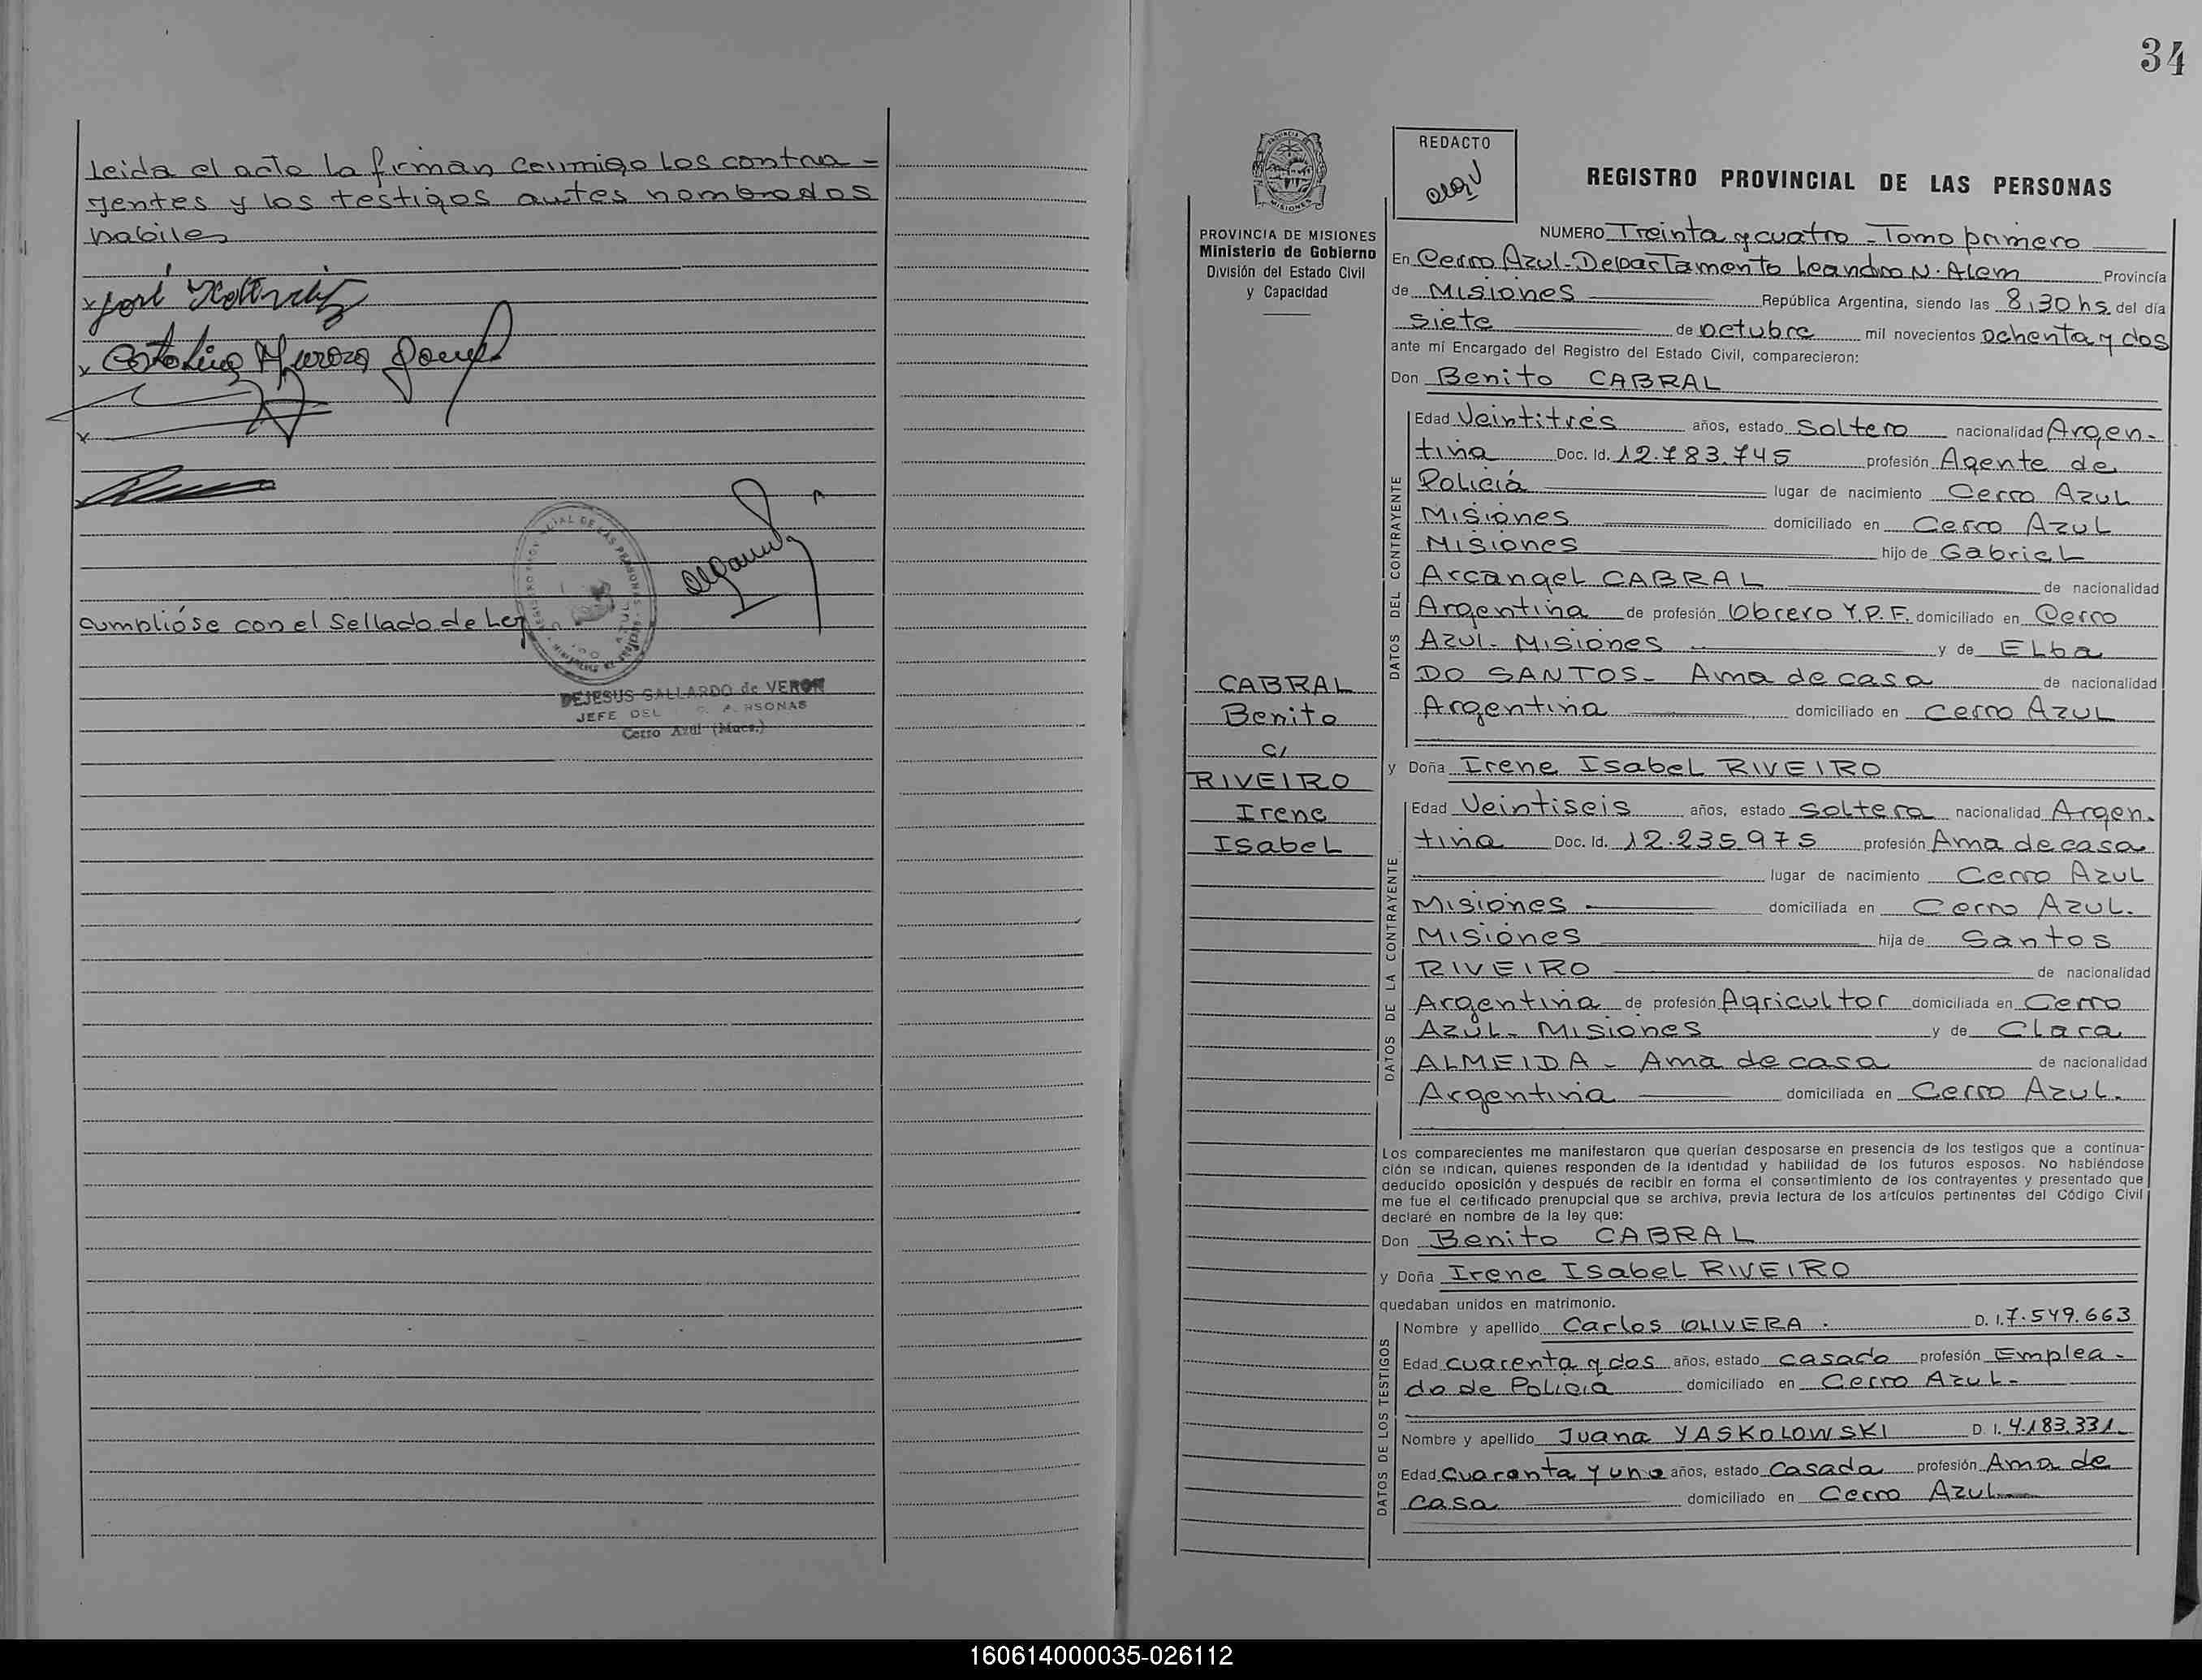 Leida el acto La firman conmigo Los contra-
yentes y los testigos antes nombrados
habiles
x José
x Catalina
x
Cumplióse con el Sellado de Ley
DEJESUS GALLARDO de VERON
JEFE DEL
Cerro Azul (Mnes.)
34
REDACTO
REGISTRO PROVINCIAL DE LAS PERSONAS
PROVINCIA DE MISIONES
Ministerio de Gobierno
División del Estado Civil
y Capacidad
NUMERO Treinta y cuatro - Tomo primero
En Cerro Azul - Departamento Leandro N. Alem Provincia
de Misiones República Argentina, siendo las 8,30 hs. del día
siete de octubre mil novecientos ochenta y dos
ante mí Encargado del Registro del Estado Civil, comparecieron:
Don Benito CABRAL
DATOS DEL CONTRAYENTE
Edad Veintitrés años, estado Soltero nacionalidad Argen-
tina Doc. Id. 12.783.745 profesión Agente de
Policía lugar de nacimiento Cerro Azul
Misiones domiciliado en Cerro Azul
Misiones hijo de Gabriel
Arcangel CABRAL de nacionalidad
Argentina de profesión Obrero Y.P.F. domiciliado en Cerro
Azul - Misiones y de Elba
DO SANTOS - Ama de casa de nacionalidad
Argentina domiciliado en Cerro Azul
CABRAL
Benito
c/
RIVEIRO
Irene
Isabel
y Doña Irene Isabel RIVEIRO
DATOS DE LA CONTRAYENTE
Edad Veintiseis años, estado soltera nacionalidad Argen-
tina Doc. Id. 12.235.975 profesión Ama de casa
lugar de nacimiento Cerro Azul
Misiones domiciliada en Cerro Azul.
Misiones hija de Santos
RIVEIRO de nacionalidad
Argentina de profesión Agricultor domiciliada en Cerro
Azul - Misiones y de Clara
ALMEIDA - Ama de casa de nacionalidad
Argentina domiciliada en Cerro Azul.
Los comparecientes me manifestaron que querían desposarse en presencia de los testigos que a continua-
ción se indican, quienes responden de la identidad y habilidad de los futuros esposos. No habiéndose
deducido oposición y después de recibir en forma el consentimiento de los contrayentes y presentado que
me fue el certificado prenupcial que se archiva, previa lectura de los artículos pertinentes del Código Civil
declaré en nombre de la ley que:
Don Benito CABRAL
y Doña Irene Isabel RIVEIRO
quedaban unidos en matrimonio.
DATOS DE LOS TESTIGOS
Nombre y apellido Carlos OLIVERA. D. I. 7.549.663
Edad cuarenta y dos años, estado casado profesión Emplea-
do de Policia domiciliado en Cerro Azul -
Nombre y apellido Juana YASKOLOWSKI D. I. 4.183.331
Edad Cuarenta y uno años, estado Casada profesión Ama de
casa domiciliado en Cerro Azul
160614000035-026112